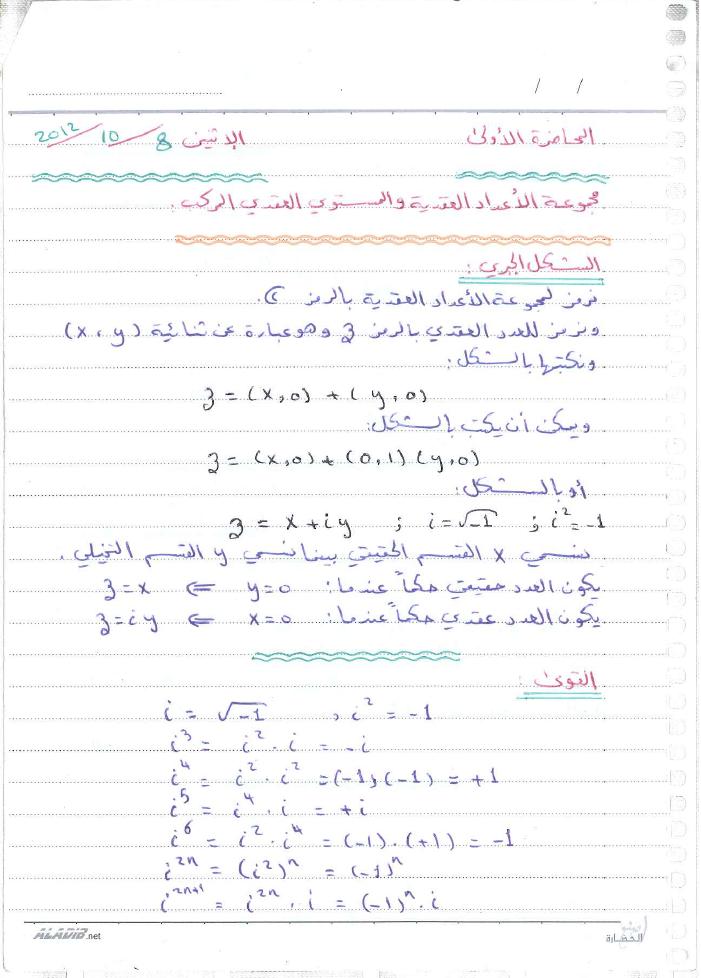 / /
المحاضرة الأولى الإثنين 8/10/2012
مجموعة الأعداد العقدية والمستوي العقدي المركب.
الشكل الجبري:
نرمز لمجموعة الأعداد العقدية بالرمز C.
ونرمز للعدد العقدي بالرمز z وهو عبارة عن ثنائية (x, y)
ونكتبها بالشكل:
z = (x,0) + (y,0)
ويمكن أن يكتب بالشكل:
z = (x,0) + (0,1) (y,0)
أو بالشكل:
z = x + iy ; i = √-1 ; i² = -1
نسمي x القسم الحقيقي بينما نسمي y القسم التخيلي.
يكون العدد حقيقي حكماً عندما: y=0 ⇐ z=x
يكون العدد عقدي حكماً عندما: x=0 ⇐ z=iy
القوى:
i = √-1 , i² = -1
i³ = i² · i = -i
i⁴ = i² · i² = (-1)(-1) = +1
i⁵ = i⁴ · i = +i
i⁶ = i² · i⁴ = (-1) · (+1) = -1
i²ⁿ = (i²)ⁿ = (-1)ⁿ
i²ⁿ⁺¹ = i²ⁿ · i = (-1)ⁿ · i
ALADIB.net
الحضارة